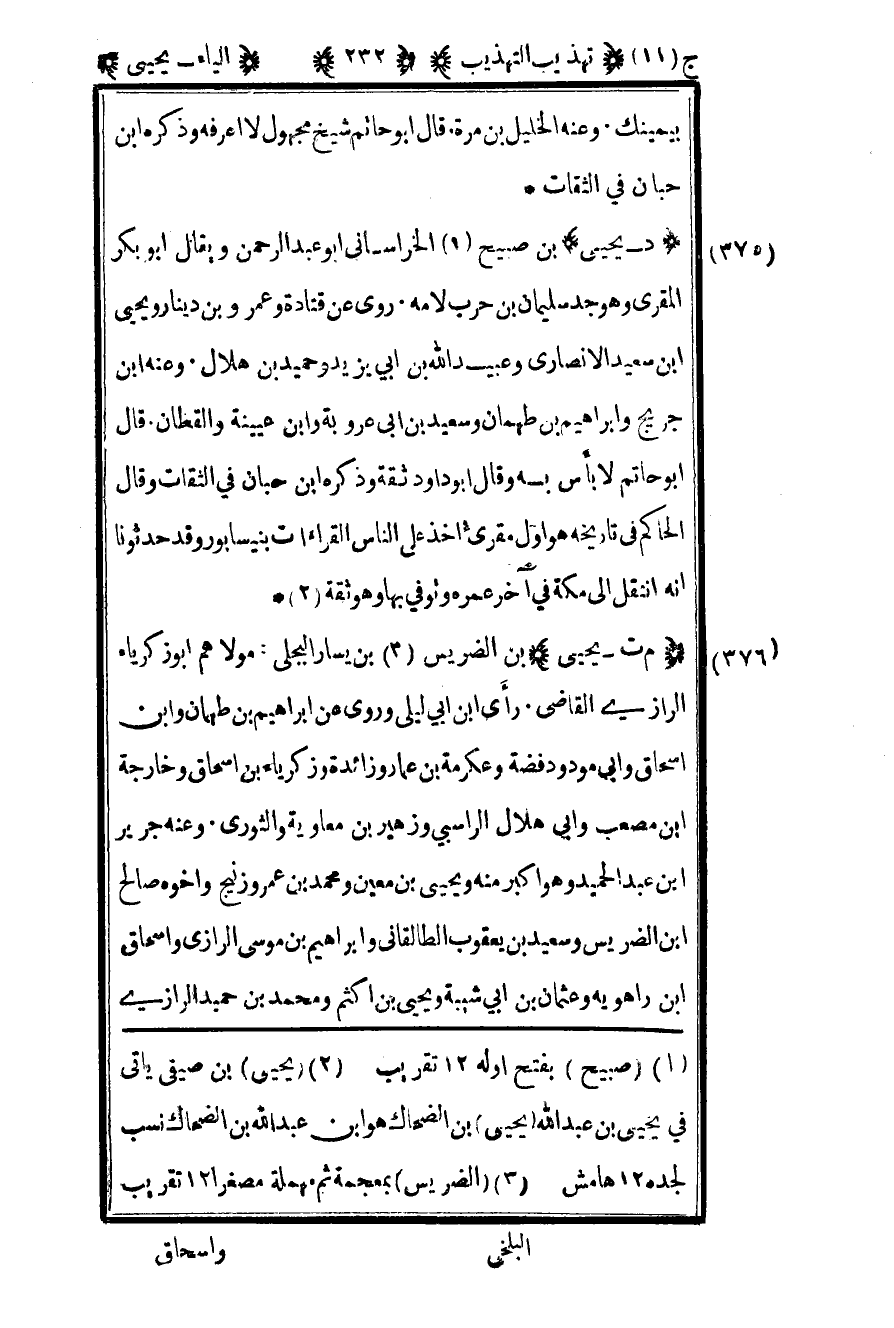 ج (١١) ﴿ تهذيب التهذيب ﴾ ﴿ ٢٣٢ ﴾ ﴿ الياء ـ يحيى ﴾
بيمينك ٠ وعنه الخليل بن مرة ٠ قال ابو حاتم شيخ مجهول لا اعرفه وذكره ابن
حبان في الثقات *
(٣٧٥) ﴿ د ـ يحيى ﴾ بن صبيح (١) الخراسانى ابو عبد الرحمن و يقال ابو بكر
المقرى وهو جد سليمان بن حرب لامه ٠ روى عن قتادة و عمر و بن دينار ويحيى
ابن سعيد الانصارى وعبيد الله بن ابي يزيد وحميد بن هلال ٠ وعنه ابن
جريج وابراهيم بن طهمان وسعيد بن ابى عروبة وابن عيينة والقطان ٠ قال
ابو حاتم لا بأس به وقال ابو داود ثقة وذكره ابن حبان في الثقات وقال
الحاكم فى تاريخه هو اول مقرئ اخذ على الناس القراءات بنيسابور وقد حدثونا
انه انتقل الى مكة في آخر عمره وتوفي بها وهو ثقة (٢) *
(٣٧٦) ﴿ م ت ـ يحيى ﴾ بن الضريس (٣) بن يسار البجلى : مولاهم ابو زكرياء
الرازي القاضى ٠ رأى ابن ابي ليلى وروى عن ابراهيم بن طهمان وابن
اسحاق وابي مودود فضة وعكرمة بن عمار وزائدة وزكرياء بن اسحاق وخارجة
ابن مصعب وابي هلال الراسبي وزهير بن معاوية والثورى ٠ وعنه جرير
ابن عبد الحميد وهو اكبر منه ويحيى بن معين ومحمد بن عمرو زنيج واخوه صالح
ابن الضريس وسعيد بن يعقوب الطالقانى وابراهيم بن موسى الرازى واسحاق
ابن راهويه وعثمان بن ابي شيبة ويحيى بن اكثم ومحمد بن حميد الرازي
(١) (صبيح) بفتح اوله ١٢ تقريب (٢) (يحيى) بن صيفى ياتى
في يحيى بن عبد الله (يحيى) بن الضحاك هو ابن عبد الله بن الضحاك نسب
لجده ١٢ هامش (٣) (الضريس) بمعجمة ثم مهملة مصغرا ١٢ تقريب
البلخي واسحاق